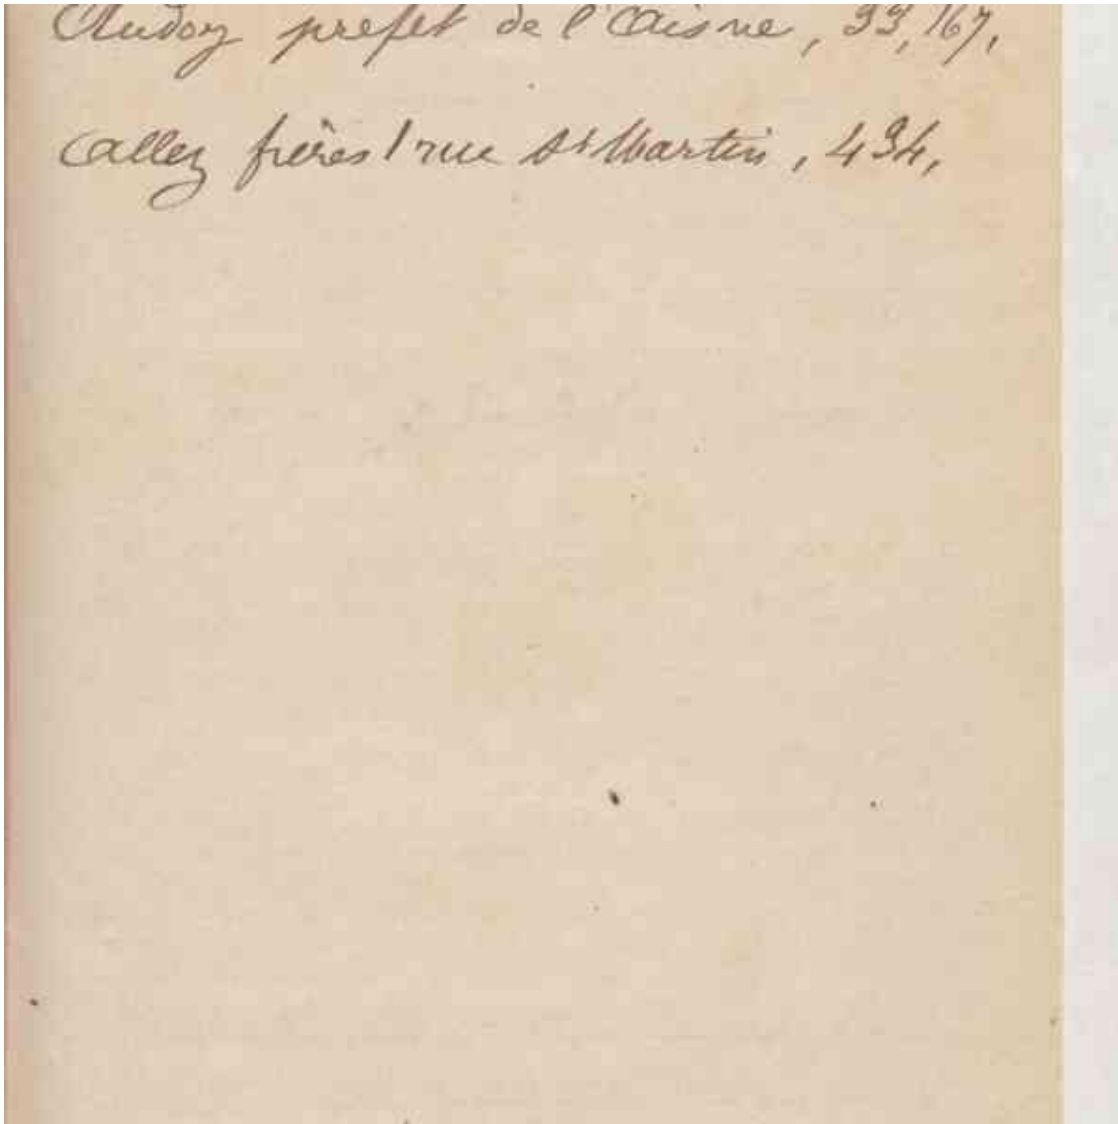 Audoy prefet de l'Aisne, 33, 167,
Allez frères 1 rue St Martin, 434,